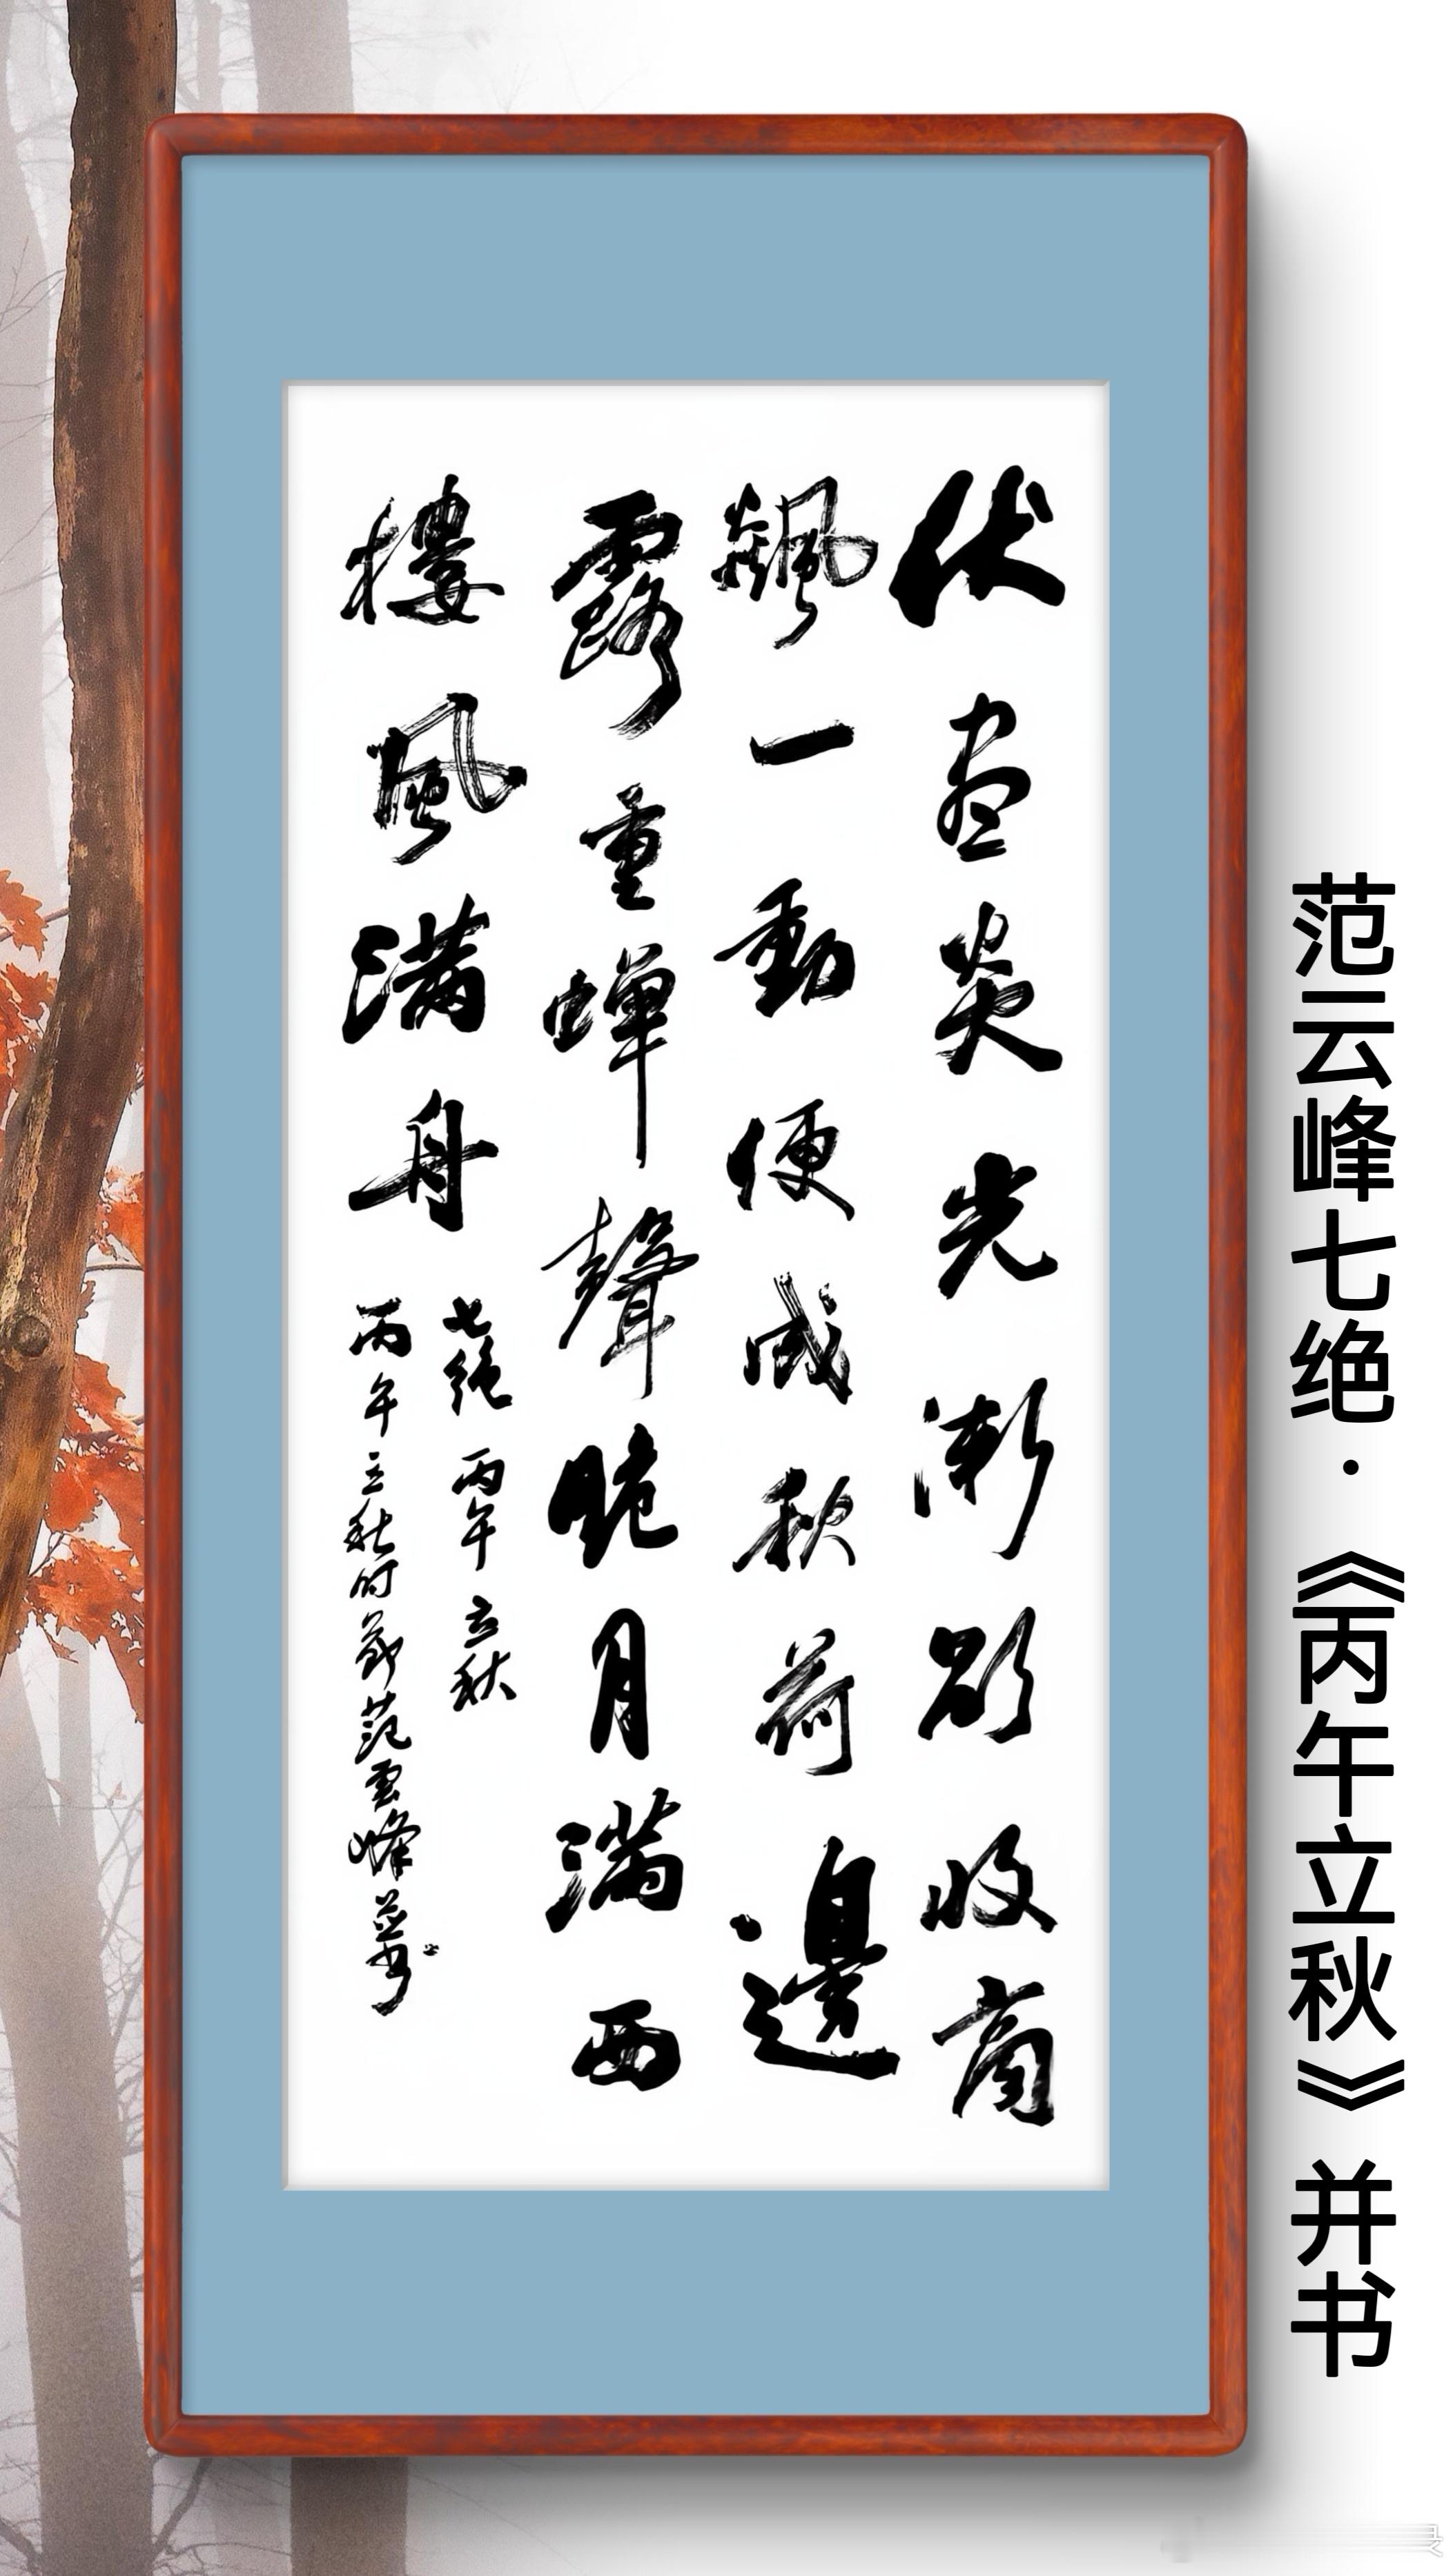 伏盡炎光漸欲收商
飆一動便成秋荷邊
露重蟬聲晚月满西
樓風满舟
七絕 丙午立秋
丙午立秋时節范雲峰并书
范云峰七绝·《丙午立秋》并书